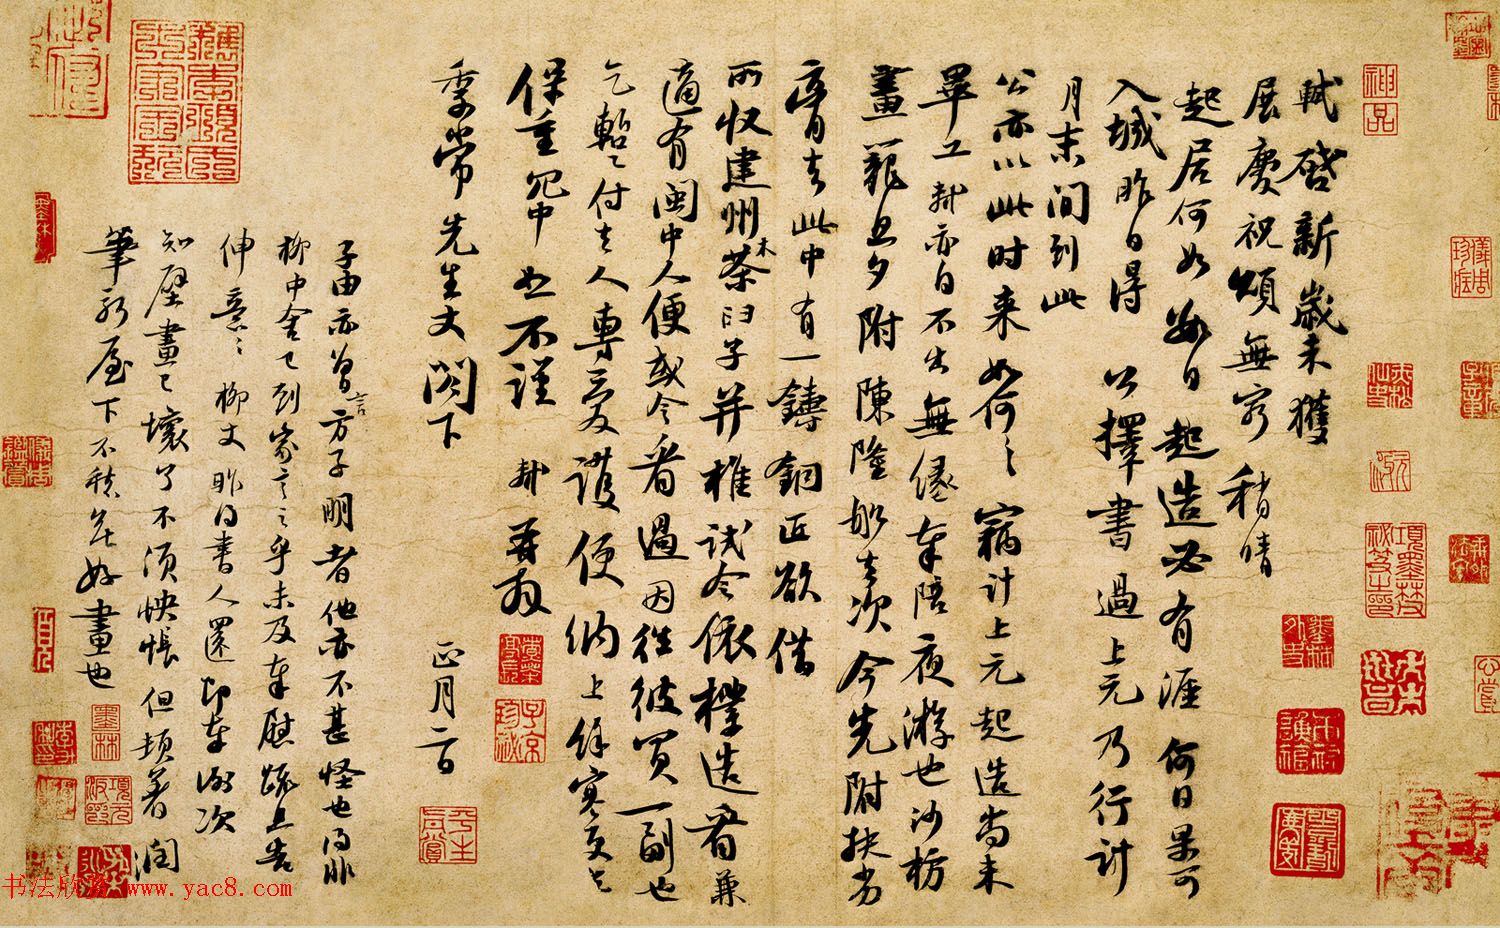 軾啓新歲未獲
展慶祝頌無窮稍晴
起居何如數日起造必有涯何日果可
入城昨日得公擇書過上元乃行計
月末間到此
公亦以此時来如何〻竊計上元起造尚未
畢工軾亦自不出無緣奉陪夜遊也沙枋
畫籠旦夕附陳隆船去次今先附扶劣
膏去此中有一鑄銅匠欲借
所収建州木茶臼子并椎試令依樣造看兼
適有閩中人便或令看過因往彼買一副也
乞蹔付去人專愛護便納上餘寒更乞
保重冗中恕不謹軾再拜
季常先生丈閣下
正月二日
子由亦曾言方子明者他亦不甚怪也得非
柳中舍已到家言之乎未及奉慰疏且告
伸意〻柳丈昨得書人還即奉謝次
知壁畫已壞了不須怏悵但頓著潤
筆新屋下不愁無好畫也
神品
項墨林
子京珍秘
平生真賞
墨林
书法欣赏 www.yac8.com